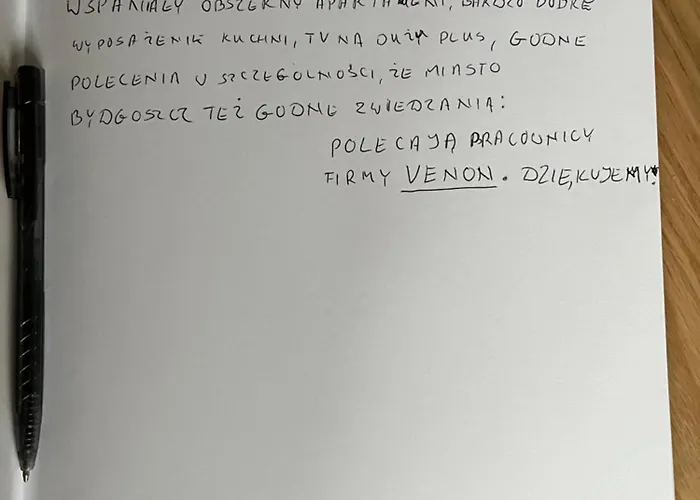 WSPANIAŁY OBSZERNY APARTAMENT, BARDZO DOBRE
WYPOSAŻENIE KUCHNI, TV NA DUŻY PLUS, GODNE
POLECENIA W SZCZEGÓLNOŚCI, ŻE MIASTO
BYDGOSZCZ TEŻ GODNE ZWIEDZANIA:
POLECAJĄ PRACOWNICY
FIRMY VENON. DZIĘKUJEMY!